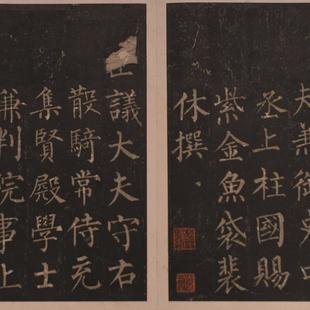 夫兼御史中
丞上柱國賜
紫金魚袋裴
休撰
正議大夫守右
散騎常侍充
集賢殿學士
兼判院事上